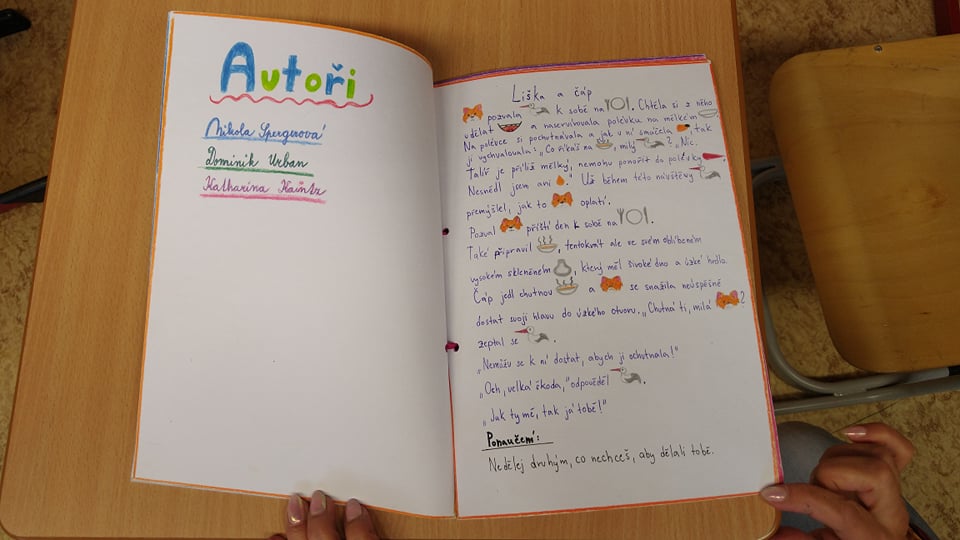 Autoři
Nikola Spergerová
Dominik Urban
Katharina Kaintz
Liška a čáp
pozvala k sobě na . Chtěla si z něho
udělat a naservírovala polévku na mělkém .
Na polévce si pochutnávala a jak v ní smáčela , tak
ji vychvalovala: „Co říkáš na , milý ? „Nic.
Talíř je příliš mělký, nemohu ponořit do polévky .
Nesnědl jsem ani ." Už během této návštěvy
přemýšlel, jak to oplatí.
Pozval příští den k sobě na .
Také připravil , tentokrát ale ve svém oblíbeném
vysokém skleněném , který měl široké dno a úzké hrdlo.
Čáp jedl chutnou a se snažila neúspěšně
dostat svoji hlavu do úzkého otvoru. „Chutná ti, milá ?
zeptal se .
„Nemůžu se k ní dostat, abych ji ochutnala!"
„Och, velká škoda," odpověděl .
„Jak ty mě, tak já tobě!"
Ponaučení:
Nedělej druhým, co nechceš, aby dělali tobě.